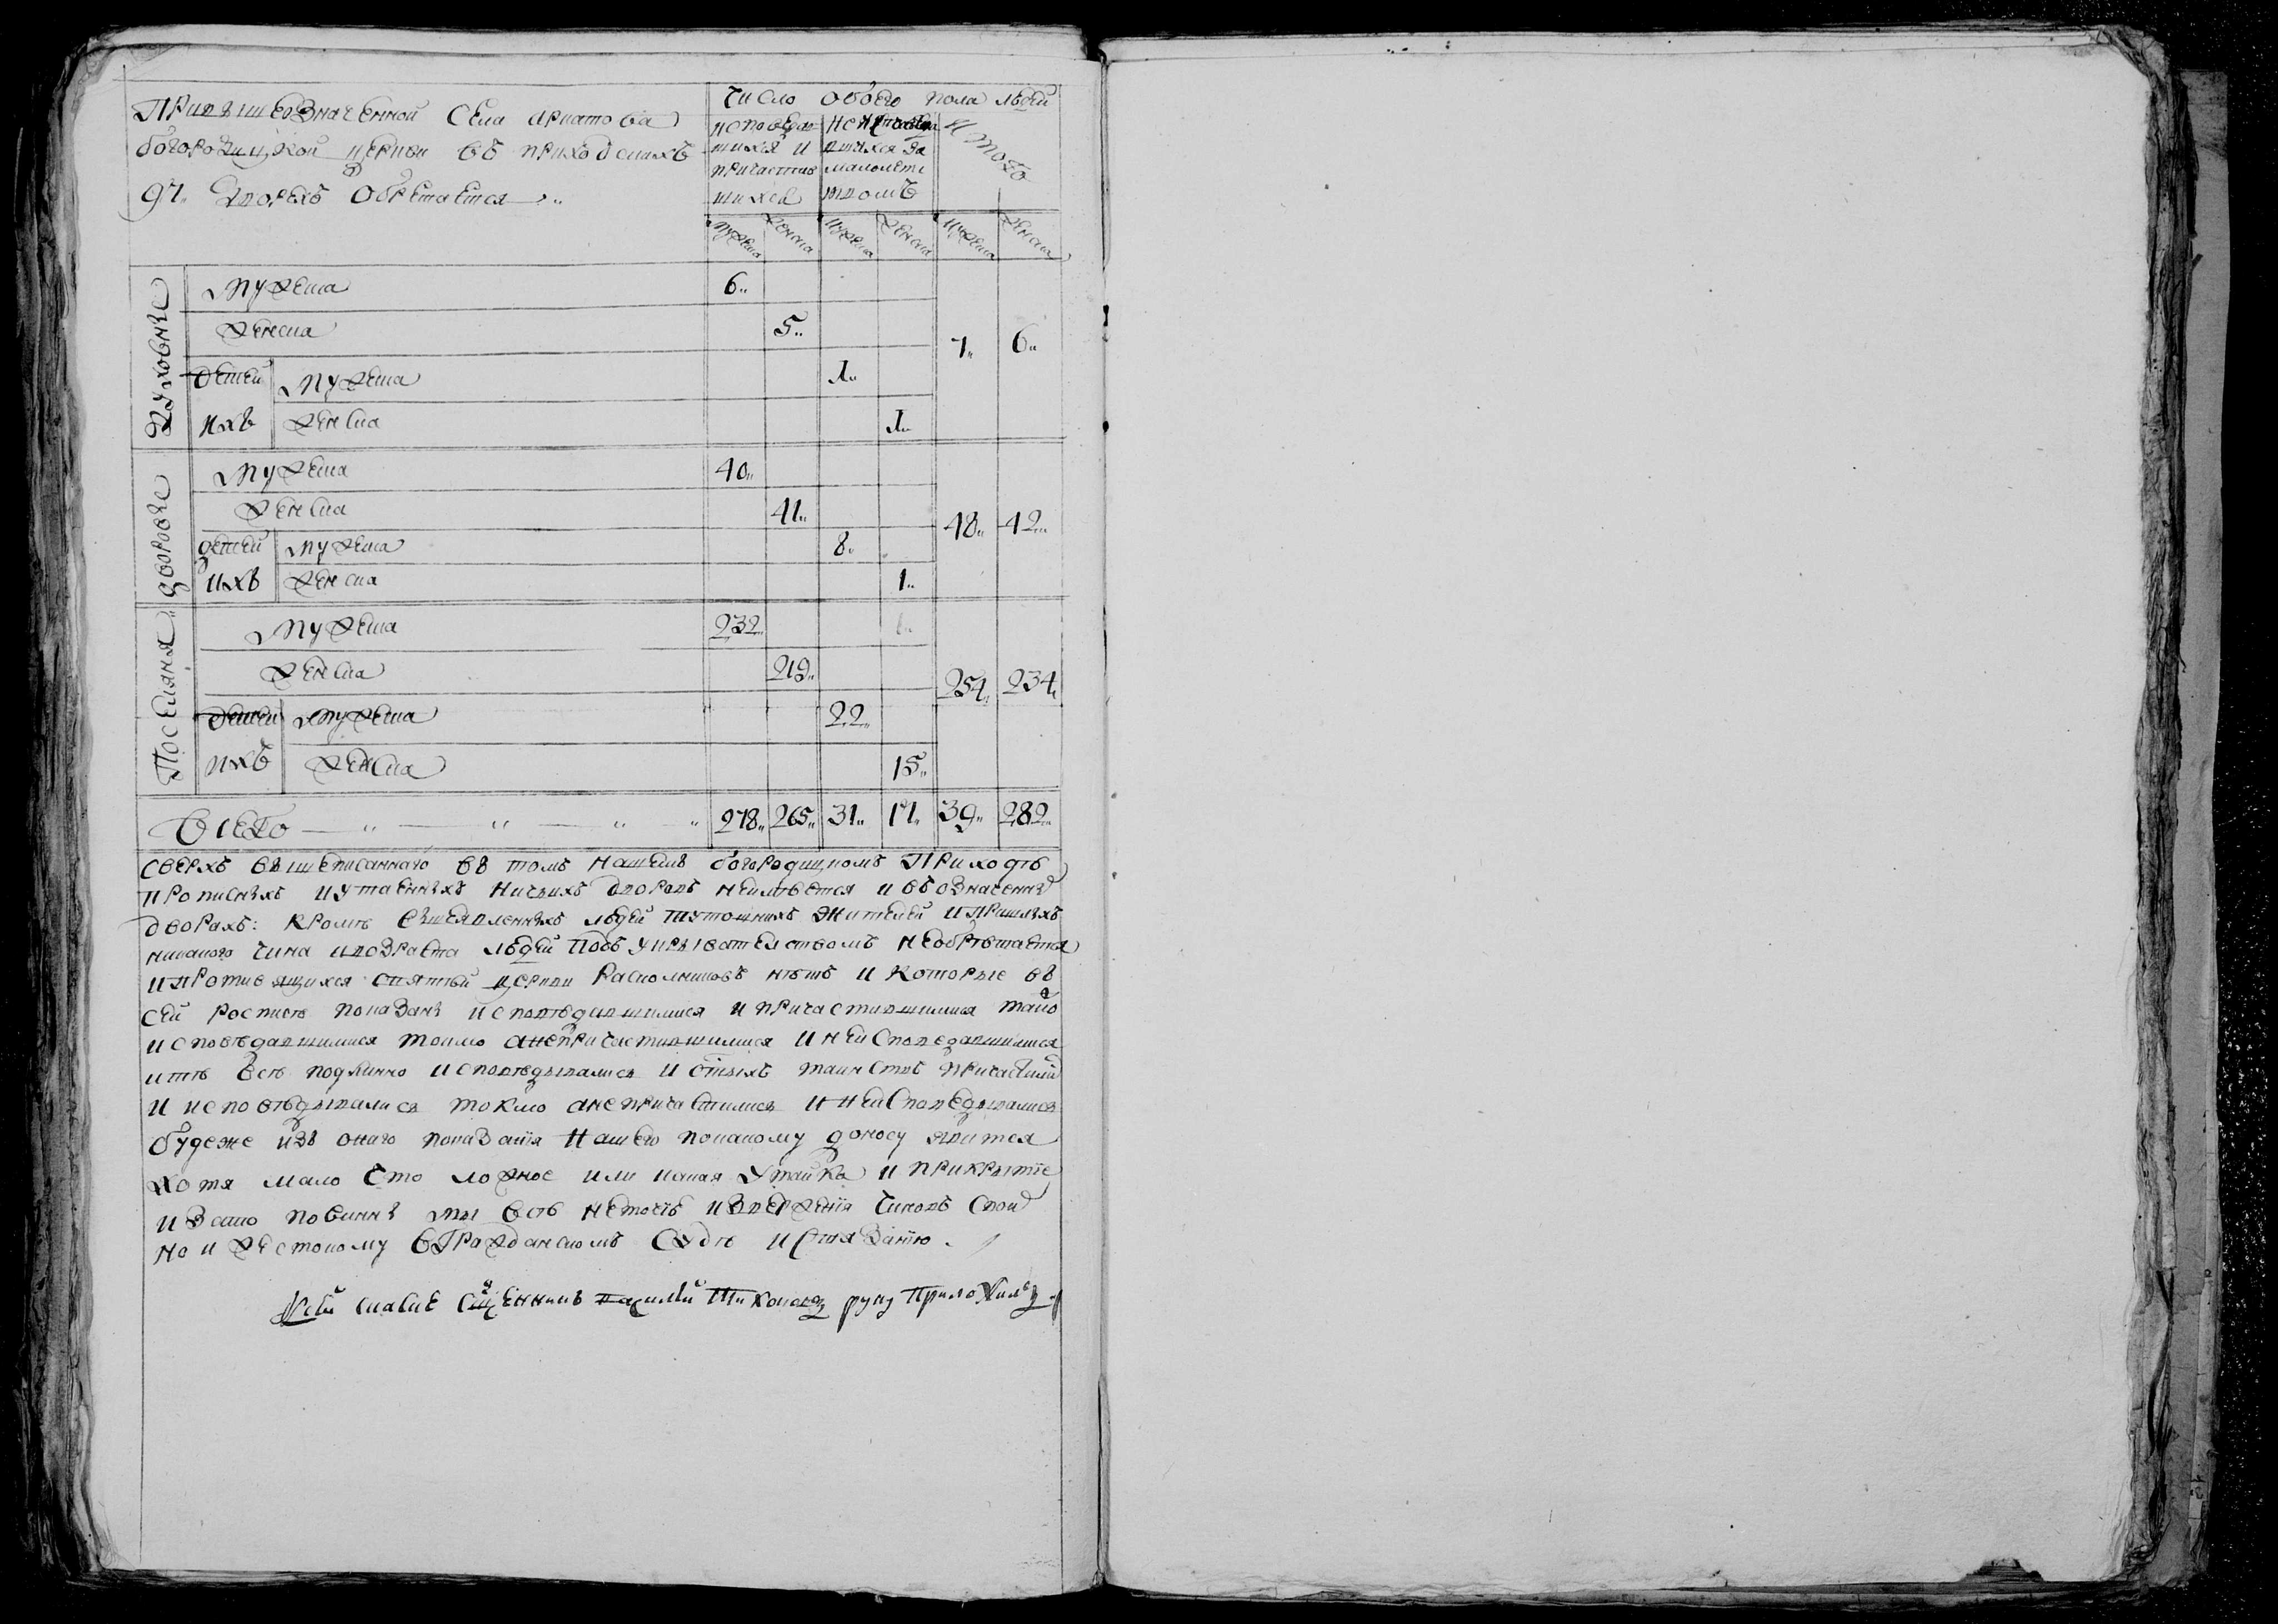 При вышеозначенной села арнатова
богородицкой церкви въ приходскихъ
97. дворехъ обретается
число обоего пола людей
исповедав
шихся и
причастив
шихся
не исповеда
вшихся за
малолетс
твомъ
итого
мужеска женска мужеска женска мужеска женска
духовные
мужеска 6
женска 5
7 6
детей мужеска 1
ихъ женска 1
дворовые
мужеска 40
женска 41
48 42
детей мужеска 8
ихъ женска 1
Поселяня
мужеска 232
женска 219
254 234
детей мужеска 22
ихъ женска 15
всего 278 265 31 17 309 282
сверхъ вышеписаннаго въ томъ нашемъ богородицкомъ приходѣ
прописныхъ и утаенныхъ ничьихъ дворовъ неимѣется и въ означенны
дворахъ: кромѣ вышеявленныхъ людей тутошнихъ жителей и пришлыхъ
никакого чина и возраста людей подъ укрывательствомъ необрѣтается
и противящихся святѣй церкви раскольниковъ нѣтъ и которые въ
сей росписѣ показаны исповѣдавшимися и причастившимися такъ
исповѣдавшимися токмо анепричастившимися и неисповедавшимися
и тѣ всѣ подлинно исповѣдывались и стыхъ таинствъ причастили
и исповѣдывались токмо анепричастились и неисповедывались
будеже изъ онаго показания нашего покакому доносу явится
хотя мало что ложное или какая утайка и прикрытие
и за сию повинны мы все неточию извержения чиновъ свои
но и жестокому в гражданскомъ суде истязанию.
къ сей сказке сщенникъ василий тихоновъ руку приложилъ